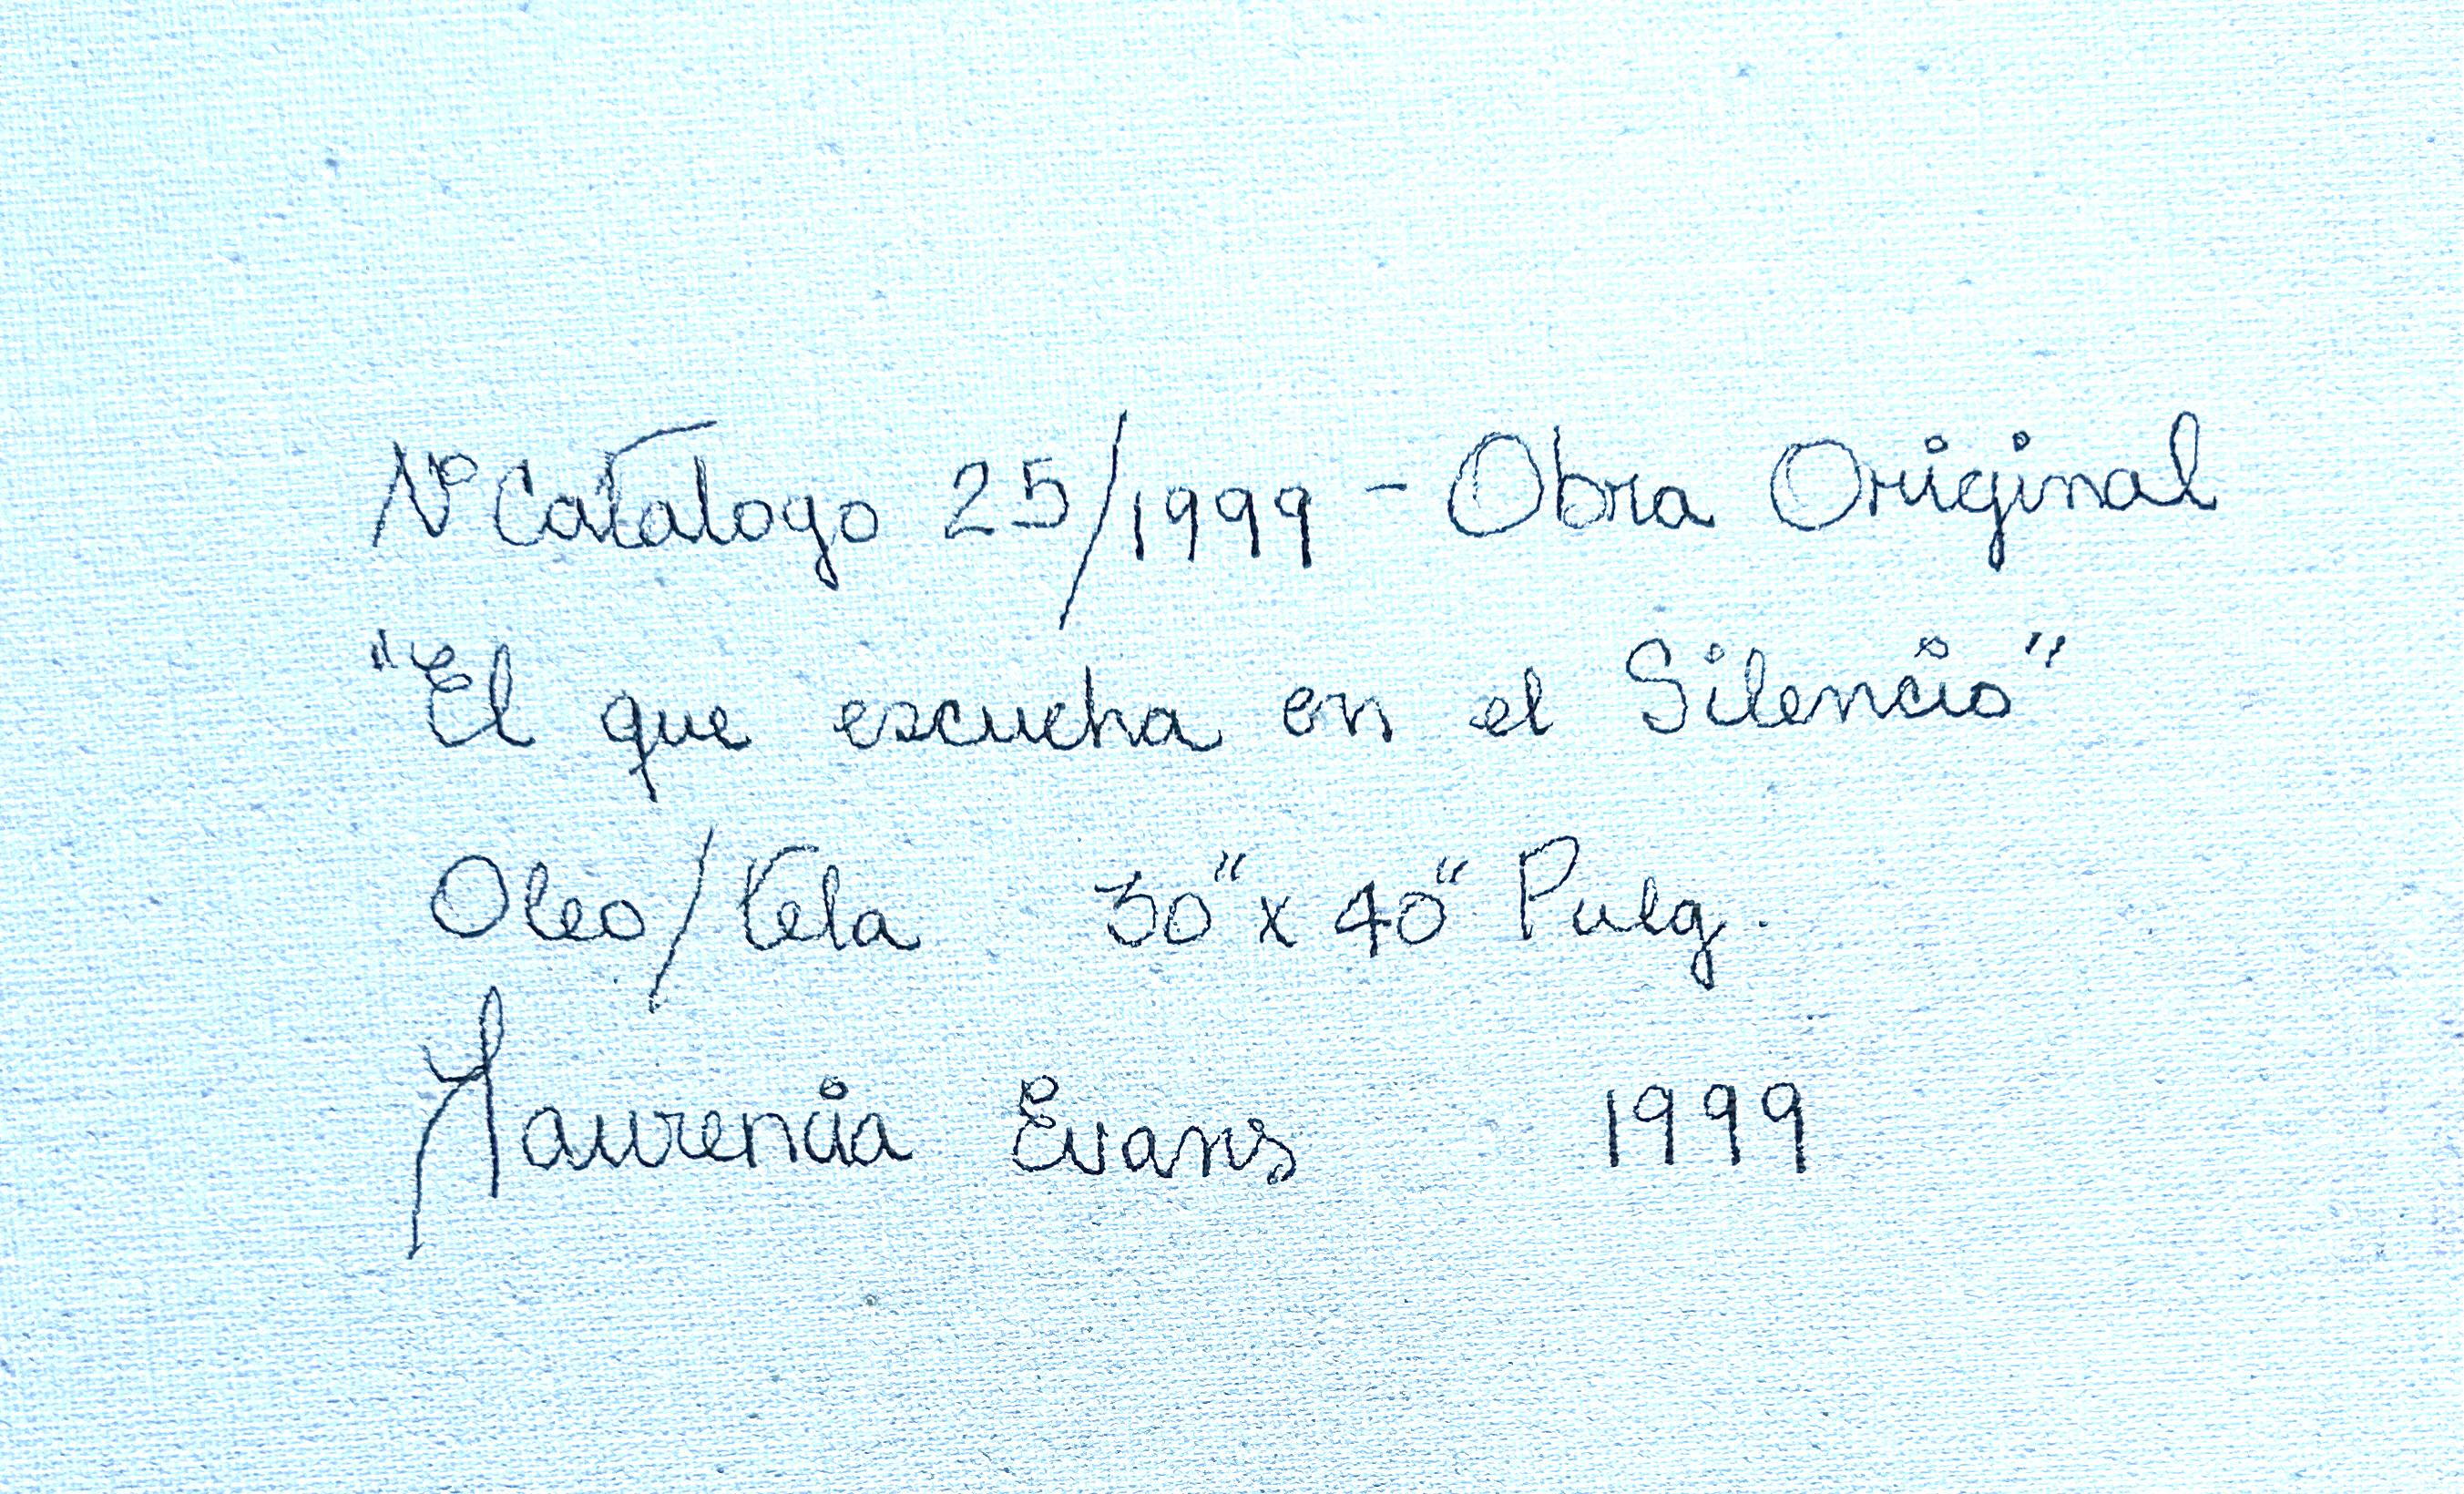 Nº Catalogo 25/1999 - Obra Original
"El que escucha en el Silencio"
Oleo/Tela 30" x 40" Pulg.
Laurencia Evans 1999